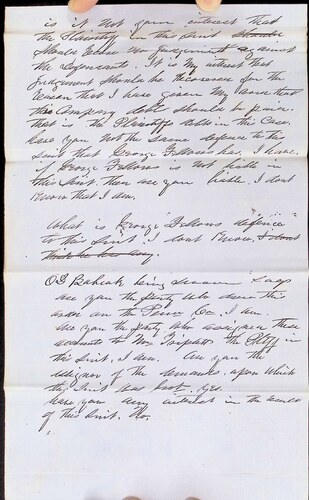 is it not your interest that
the Plaintiff in this Suit should
should recover no Judgement against
the Defendants. It is my interest that
Judgement should be recovered for the
reason that I have given my
this Company debt should be paid.
that is the Plaintiffs debt in this Case.
have you not the same defence to this
suit that George Fellows has, I have,
if George Fellows is not liable in
this Suit. then are you liable. I dont
know that I am.
What is George Fellows defence
to this Suit. I dont know I dont
think he has any.
O S Babcock being sworn Says
are you the party who
on the Co. I am.
are you the party who assigned these
accounts to Mr the Plff in
this Suit, I am. Are you the
assignor of the demands, upon which
this Suit was brot. Yes.
have you any interest in the
of this Suit. No.